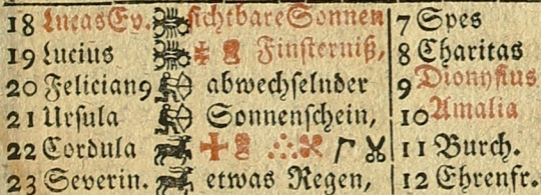 18 Lucas Ev. sichtbare Sonnen 7 Spes
19 Lucius Finsterniß, 8 Charitas
20 Felician9 abwechselnder 9 Dionysius
21 Ursula Sonnenschein, 10 Amalia
22 Cordula 11 Burch.
23 Severin. etwas Regen, 12 Ehrenfr.